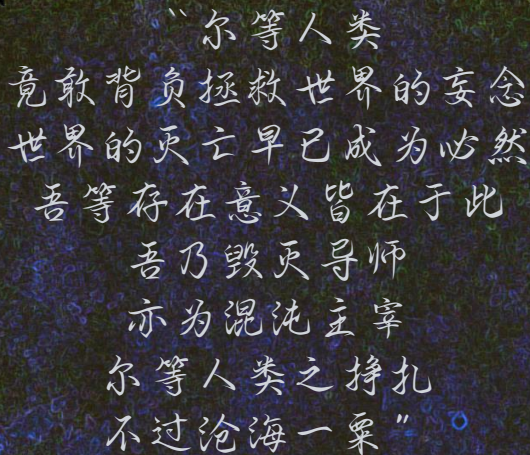 “尔等人类
竟敢背负拯救世界的妄念
世界的灭亡早已成为必然
吾等存在意义皆在于此
吾乃毁灭导师
亦为混沌主宰
尔等人类之挣扎
不过沧海一粟”